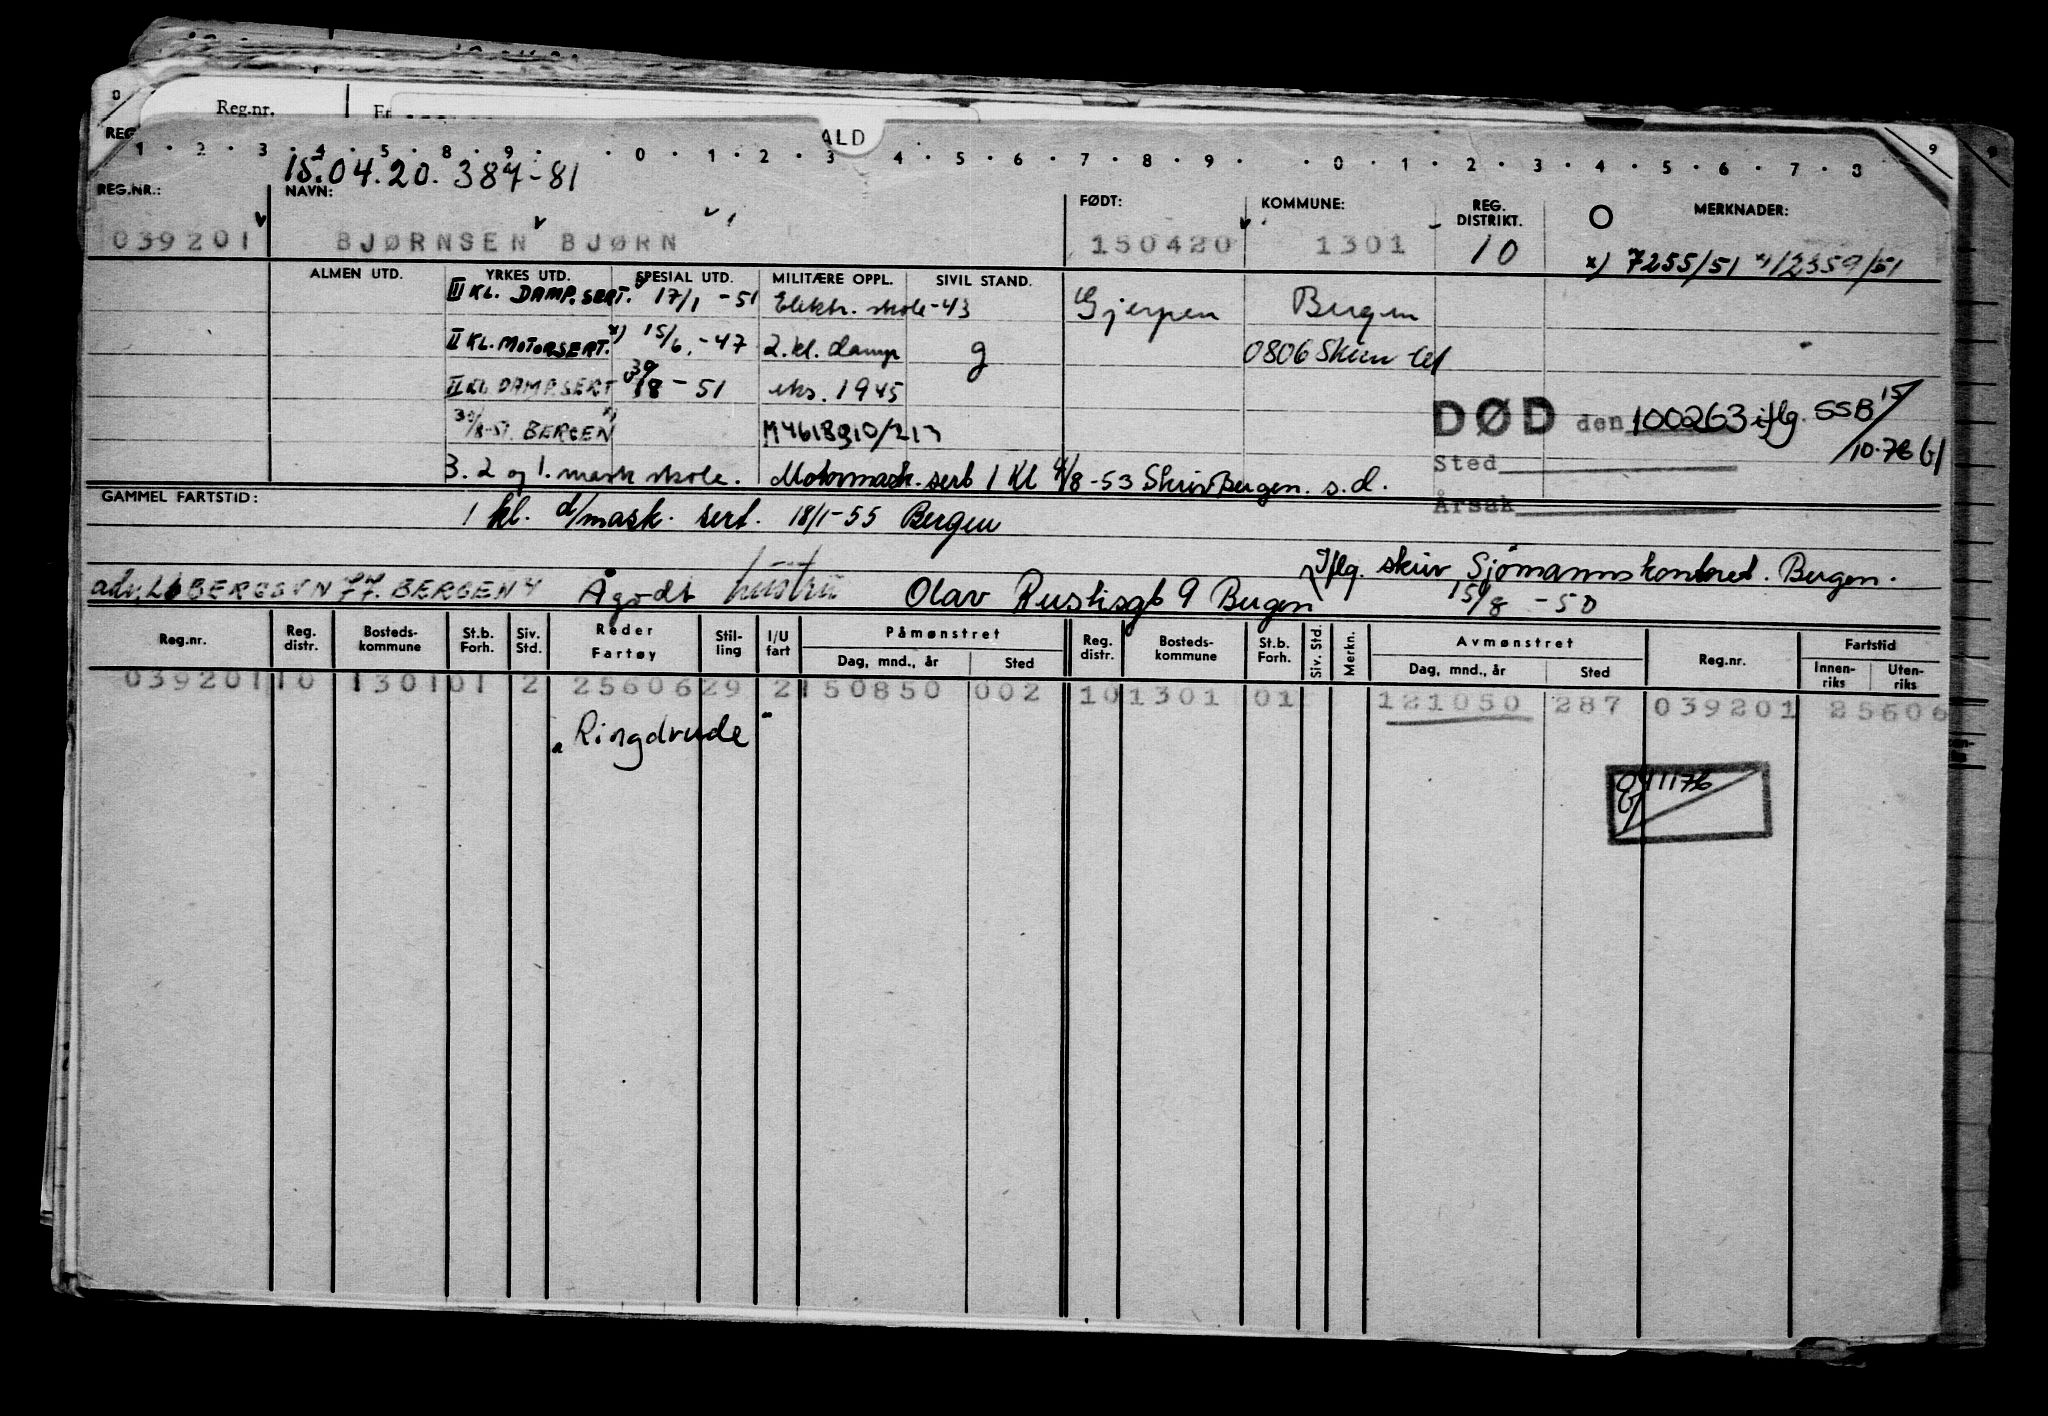 Reg.nr.
ALD
1 · 2 · 3 · 4 · 5 · 8 · 9 · · 0 · 1 · 2 · 3 · 4 · 5 · 6 · 7 · 8 · 9 · · 0 · 1 · 2 · 3 · 4 · 5 · 6 · 7 · 8 9
15.04.20.387-81
REG.NR.: NAVN: FØDT: KOMMUNE: REG. DISTRIKT. MERKNADER:
039201 BJØRNSEN BJØRN 150420 1301 10 x) 7255/51 x) 12359/51
ALMEN UTD. YRKES UTD. SPESIAL UTD. MILITÆRE OPPL. SIVIL STAND.
III KL. DAMP.SERT. 17/1 -51 Elektr. skole -43 Gjerpen Bergen
II KL. MOTORSERT. x) 15/6. -47 2. kl. damp g 0806 Skien
II KL DAMPSERT 30/8 - 51 eks. 1945
DØD den 100263 iflg. SSB 15/10.76
30/8-51. BERGEN M4618910/213
Sted
3. 2 og 1. mask skole. Motormask. sert 1 Kl 4/8 -53 Skriv Bergen. s.d.
GAMMEL FARTSTID: Årsak
1 kl. d/mask. sert. 18/1-55 Bergen
Iflg. skriv Sjømannskontoret. Bergen.
15/8 - 50
BERGEN Ågodt hustru Olav Rustisgt 9 Bergen
Reg.nr. Reg. distr. Bosteds-kommune St.b. Forh. Siv. Std. Reder Fartøy Stil-ling I/U fart Påmønstret Dag, mnd., år Sted Reg. distr. Bosteds-kommune St.b. Forh. Siv. Std. Merkn. Avmønstret Dag, mnd., år Sted Reg.nr. Fartstid Innen-riks Uten-riks
039201 10 1301 01 2 25606 29 2 150850 002 10 1301 01 121050 287 039201 25606
"Ringdrude"
041176